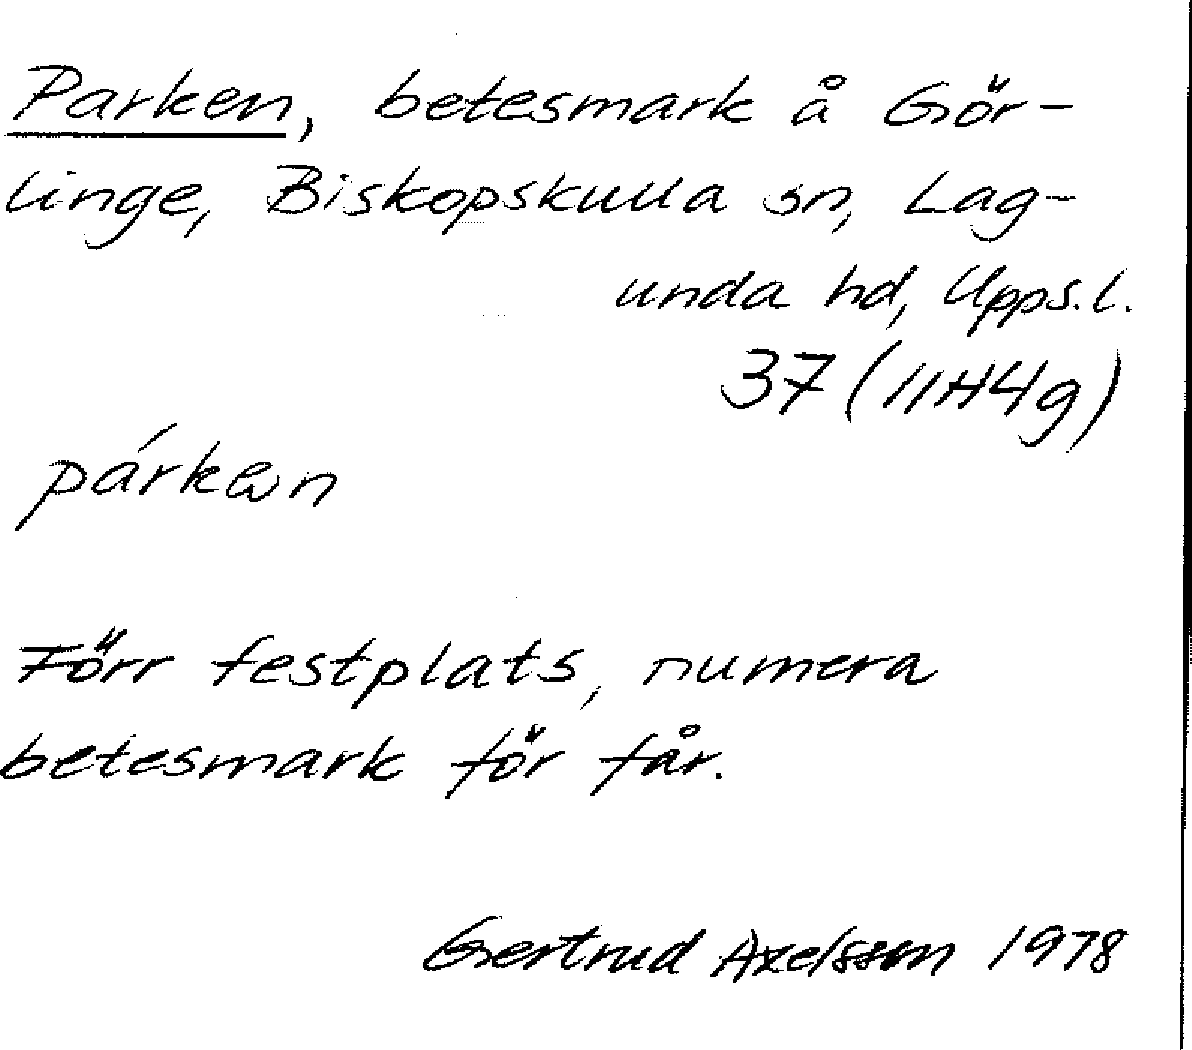 Parken, betesmark å Gör-
linge, Biskopskulla sn, Lag-
unda hd, Upps.l.
37 (11H4g)
párken
Förr festplats, numera
betesmark för får.
Gertrud Axelsson 1978